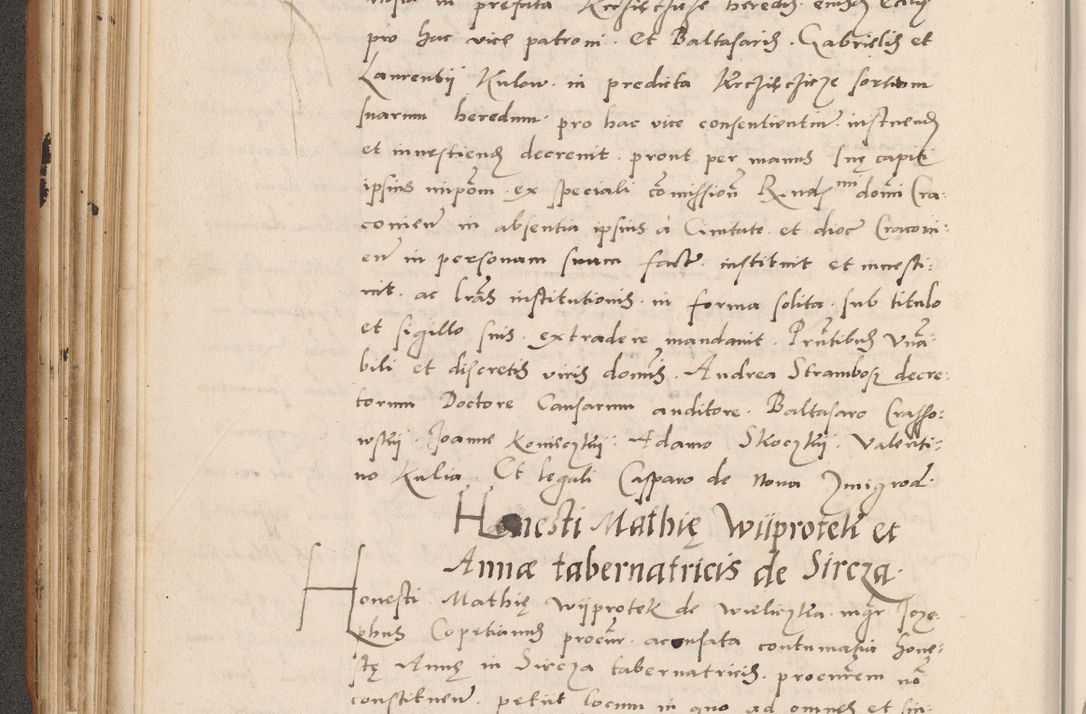 in prefata
pro hac vice patroni. Et Baltasaris. Gabrielis et
Laurentii Kulow. in predicta sortium
suarum heredum. pro hac vice consentientium. instituend
et investiend decrevit. prout per manus suę capiti
ipsius impom. ex speciali comission Rmi domi Cra-
covien in absentia ipsius à Civitate et dioc Cracovi:
en in personam suam fact. instituit et investi:
vit. ac lras institutionis. in forma solita. sub titulo
et sigillo suis. extradere mandavit. Pntibus Vna:
bili et discretis viris domis. Andrea Strambosz decre:
torum Doctore Causarum auditore. Baltasaro Crasso:
wskÿ. Joanne Konieczkÿ. Adamo Skoczkÿ. Valenti:
no Kulia. Et legali Casparo de Nova Zmigrod.
Honesti Mathię Wÿprotek et
Annæ tabernatricis de Sircza.
Honesti Mathię Wÿprotek de Wieliczka. mgr Joze:
phus Copetianus procur. accusata contumatia hone:
stę Annę in Sircza tabernatricis. procurem no
constituen. petiit locum in quo ad omnes et sin: